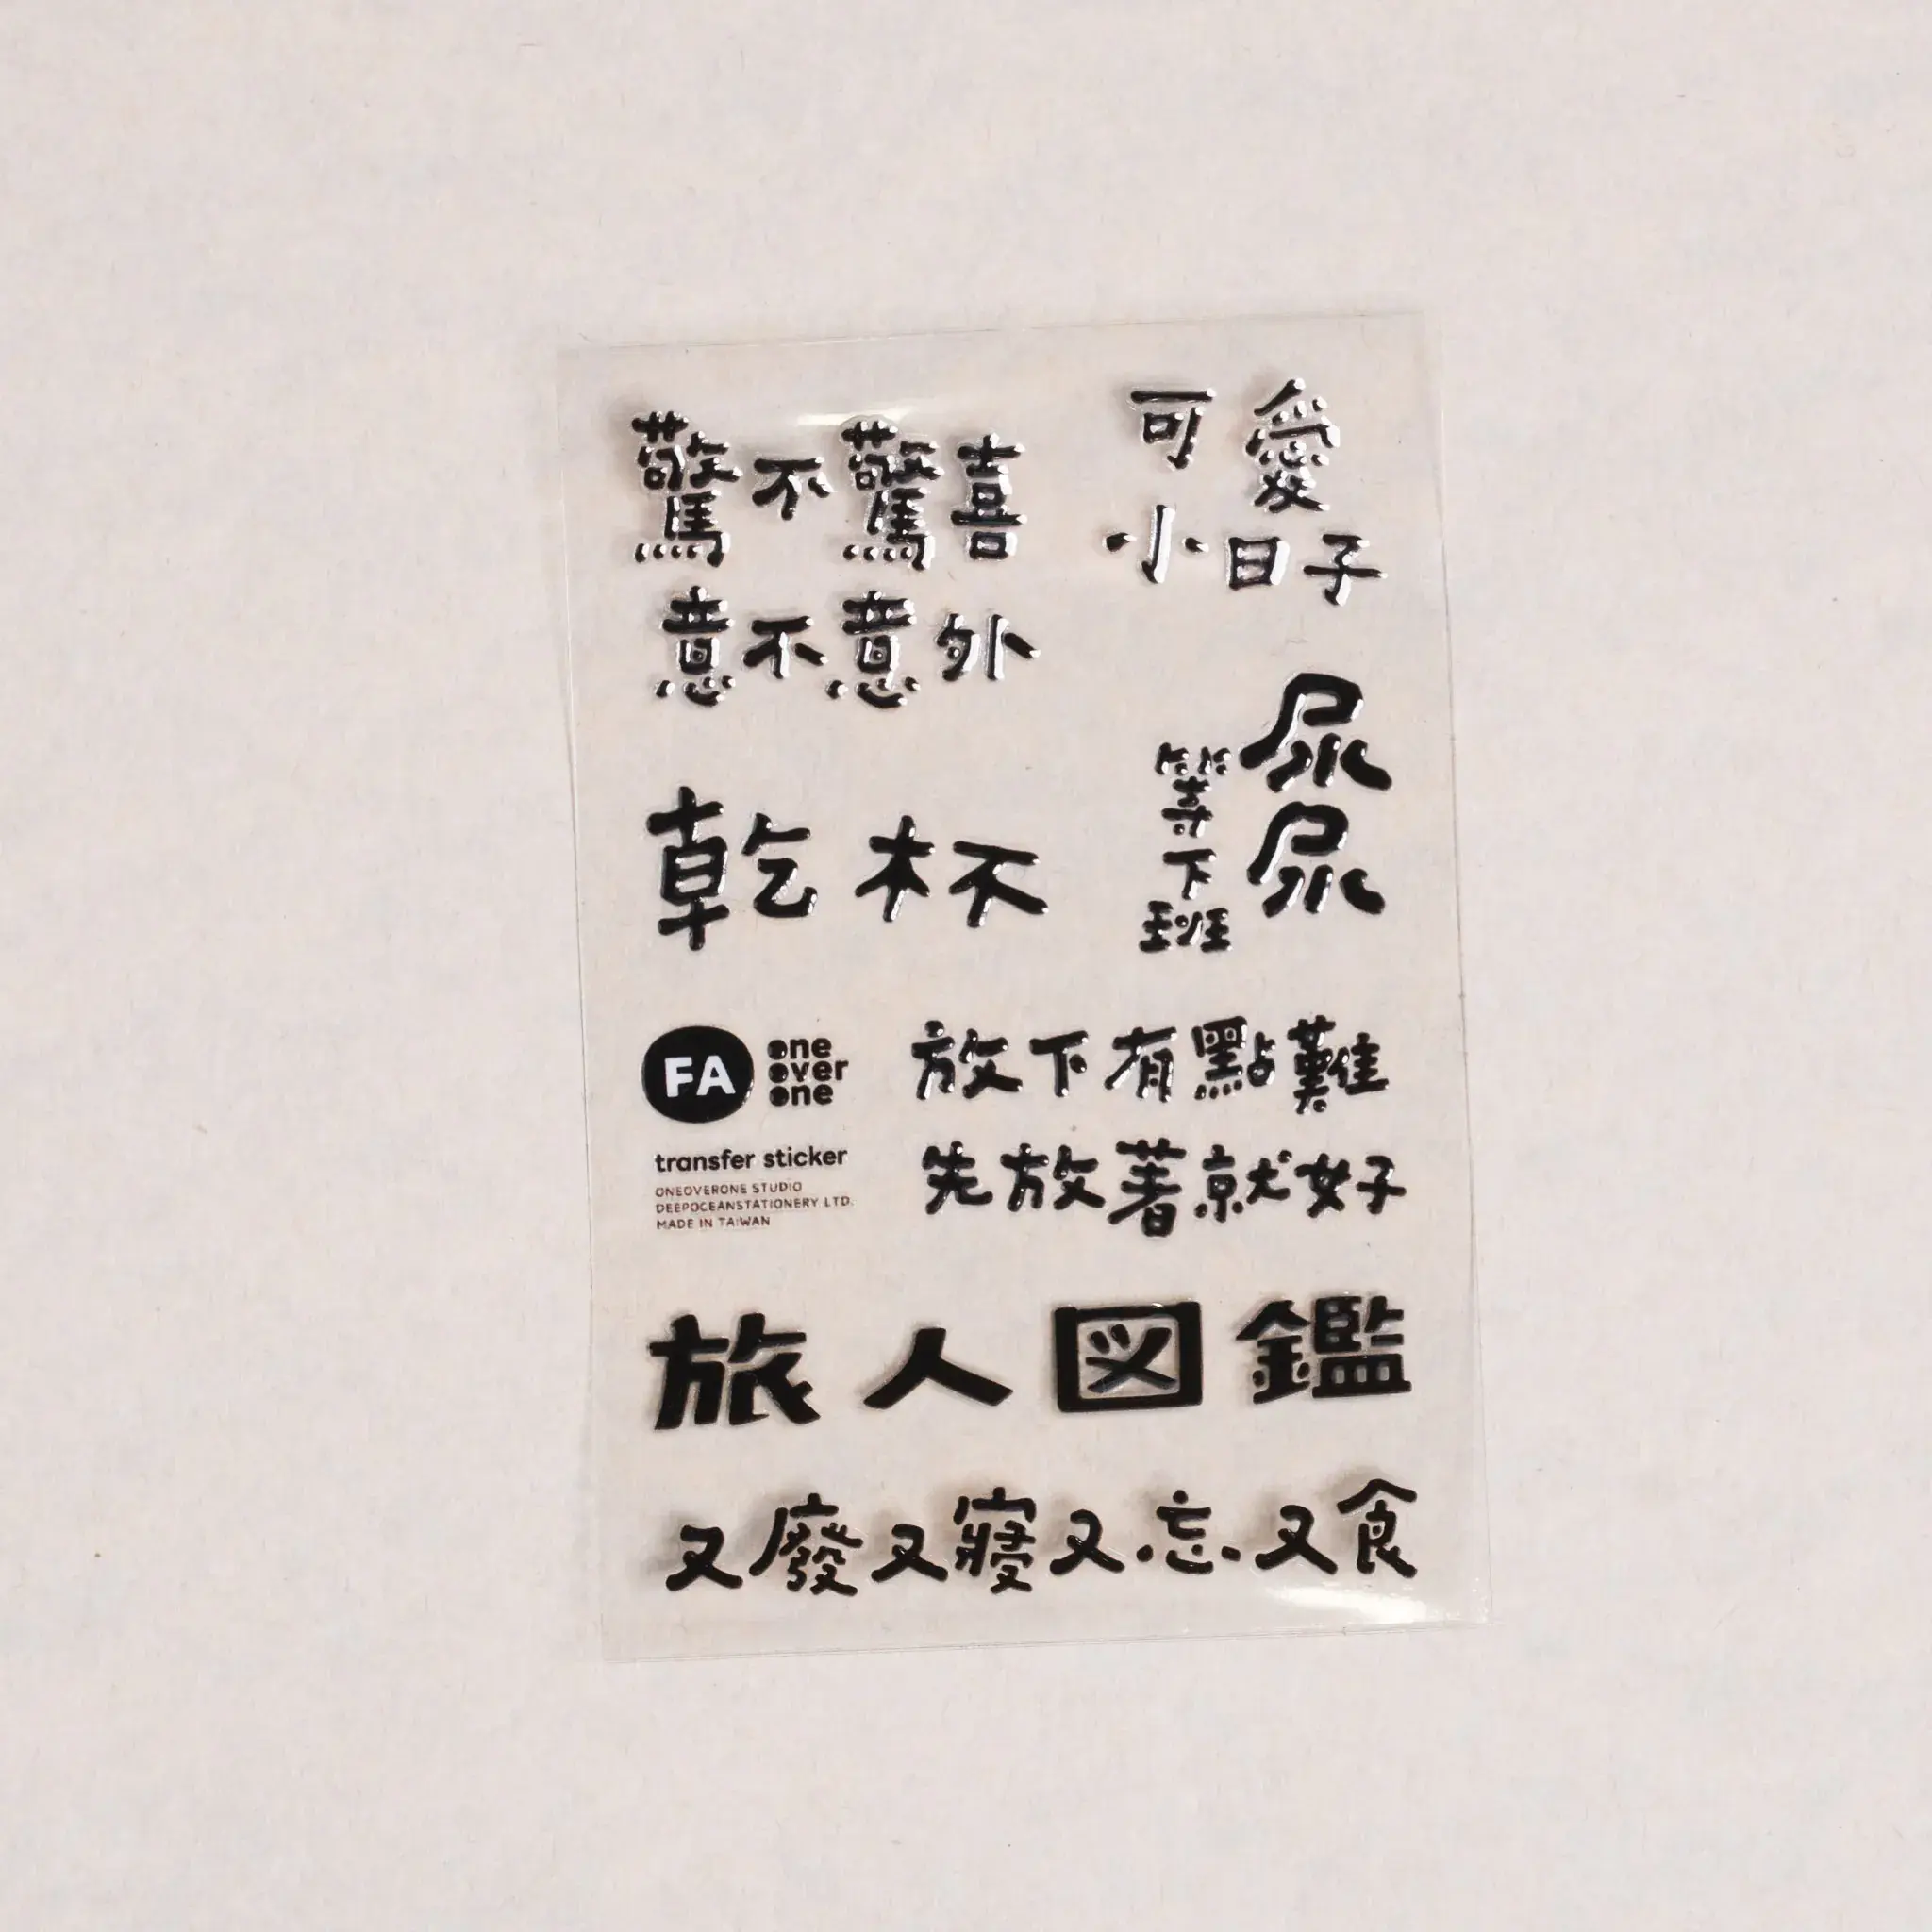 驚不驚喜
意不意外
可愛
小日子
尿尿
等下班
乾杯
FA
one
over
one
transfer sticker
ONEOVERONE STUDIO
DEEPOCEANSTATIONERY LTD.
MADE IN TAIWAN
放下有點難
先放著就好
旅人図鑑
又廢又寢又忘又食